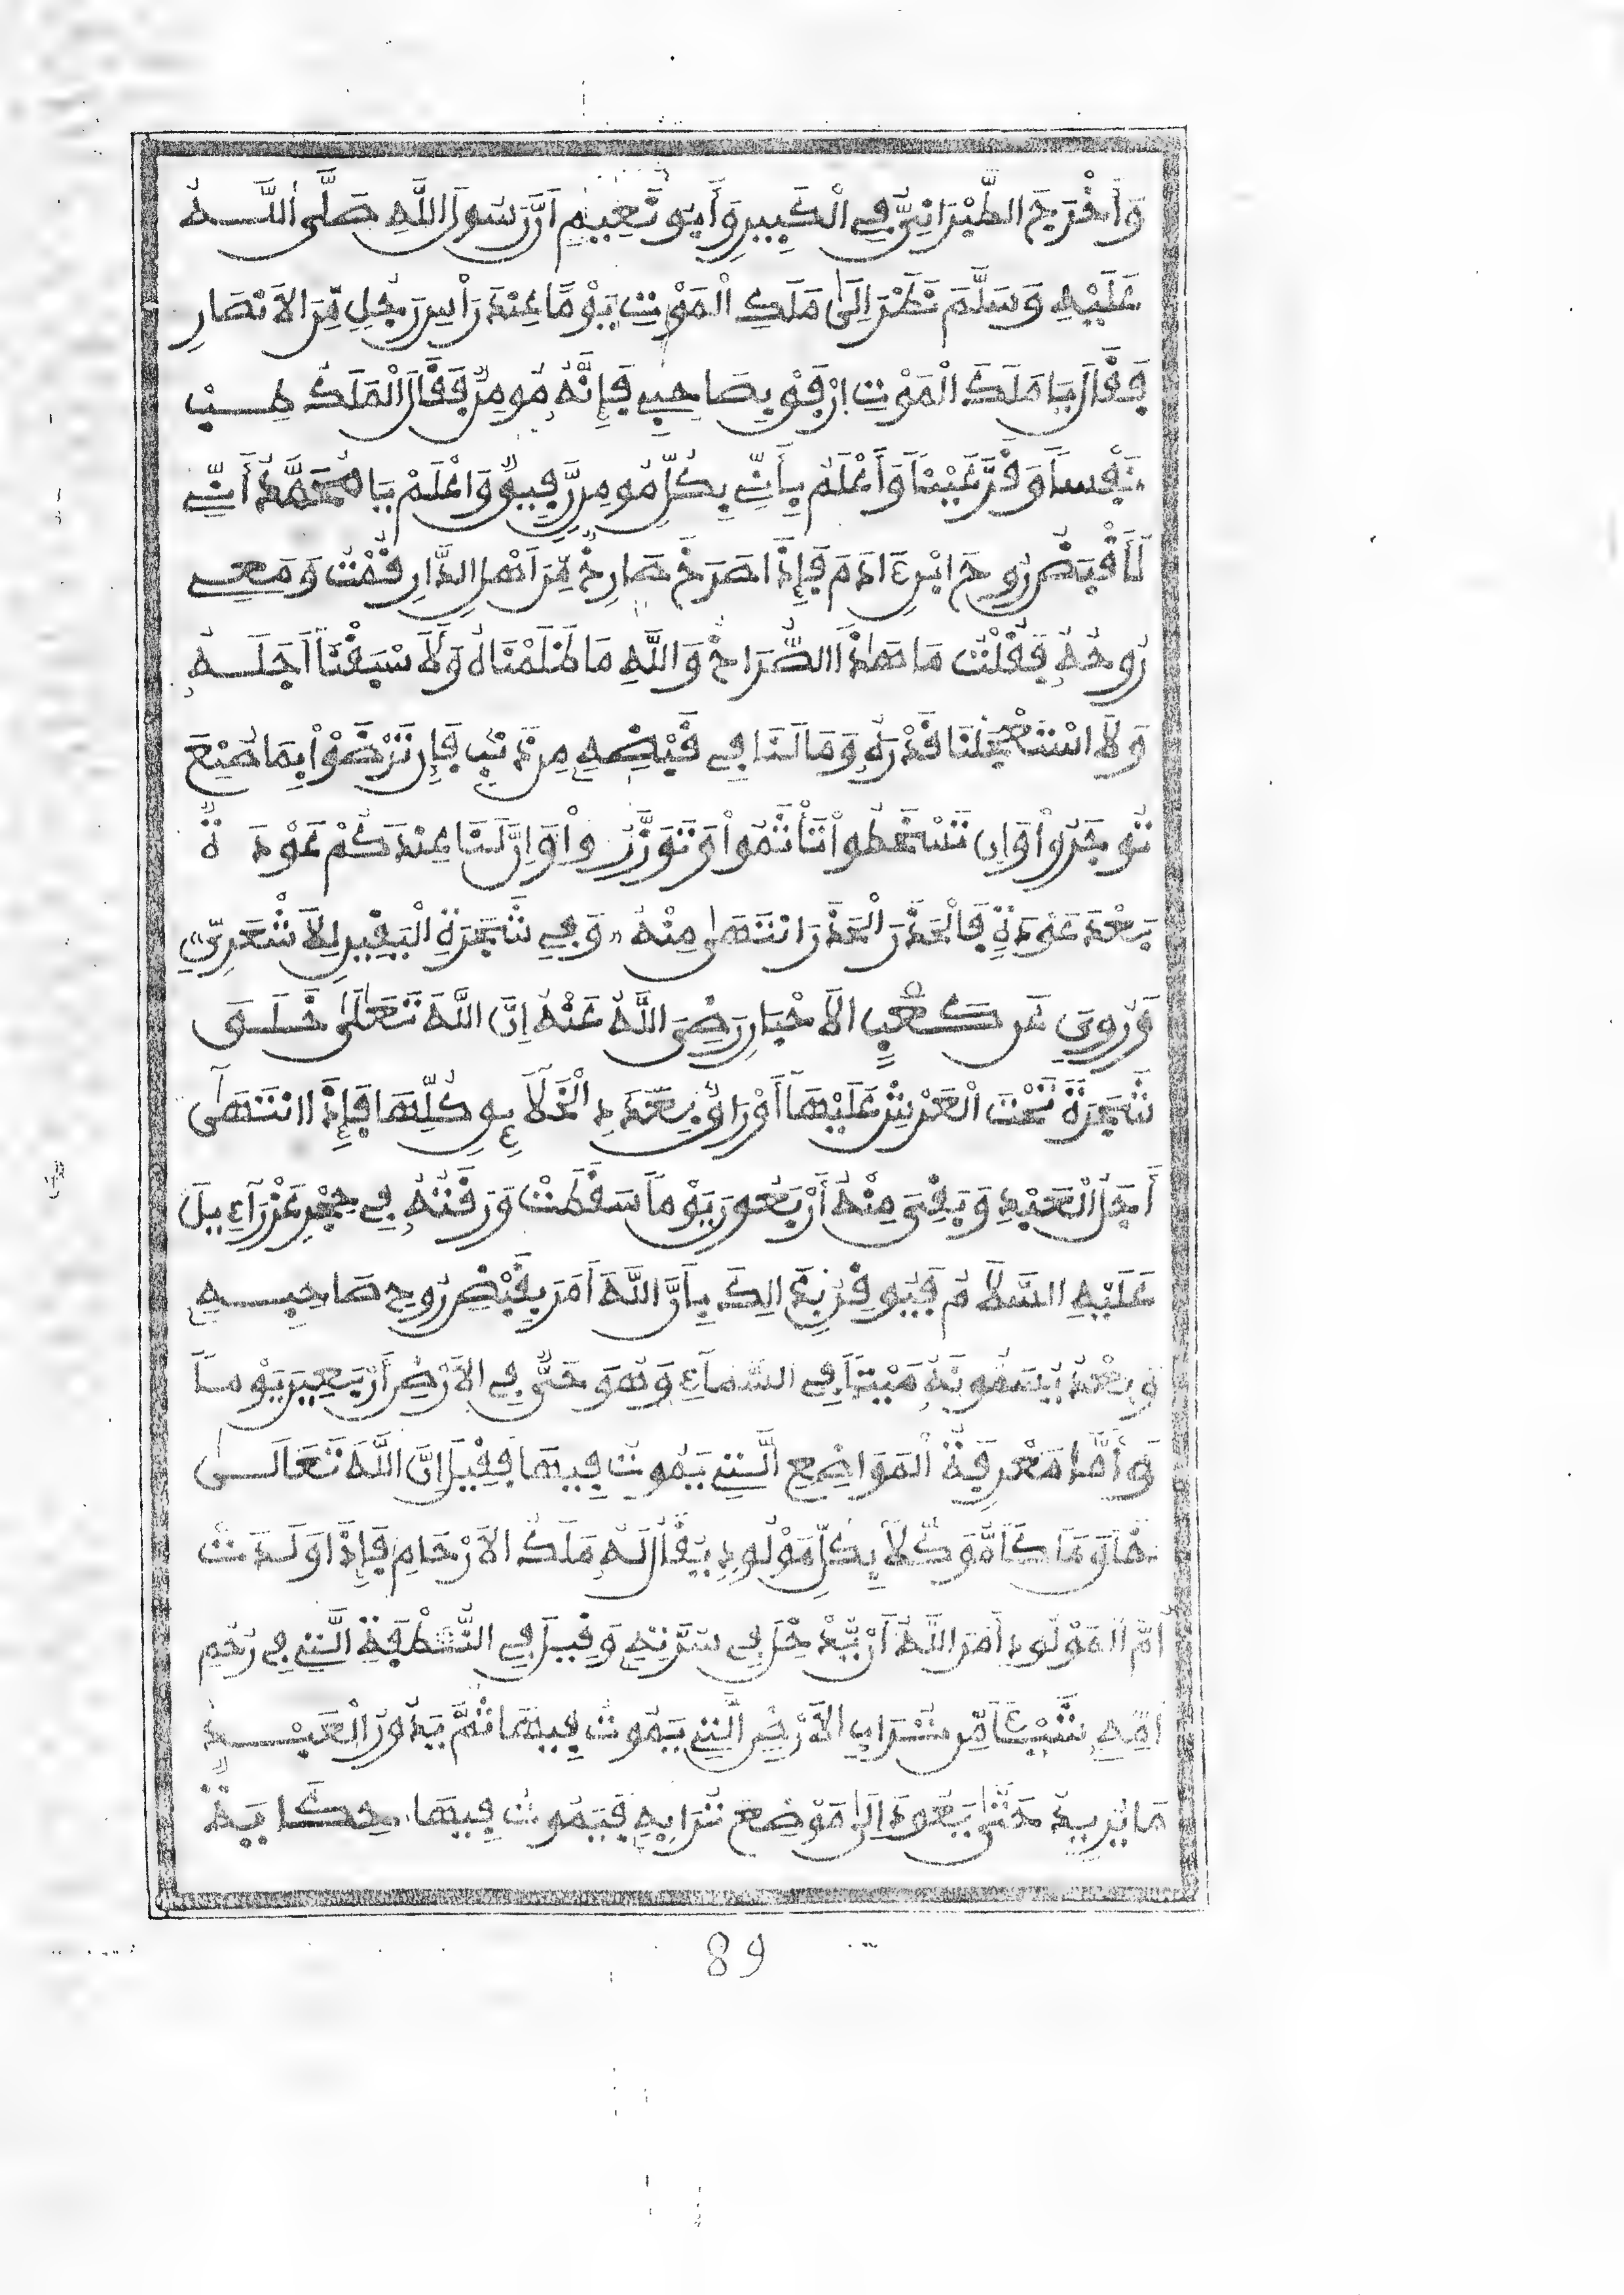 وَأَخْرَجَ الطَّبْرَانِيُّ فِي الْكَبِيرِ وَأَبُو نُعَيْمٍ اَنَّ رَسُولَ اللَّهِ صَلَّى اللَّهُ
عَلَيْهِ وَسَلَّمَ نَظَرَ اِلَىٰ مَلَكِ الْمَوْتِ يَوْمًا عِنْدَ رَأْسِ رَجُلٍ مِّنَ الاَنْصَارِ
فَقَالَ يَا مَلَكَ الْمَوْتِ اِرْفَقْ بِصَاحِبِي فَإِنَّهُ مُومِنٌ فَقَالَ الْمَلَكُ طِبْ
نَفْساً وَقَرَّ عَيْناً وَأَعْلَمُ بِأَنِّي بِكُلِّ مُومِنٍ رَّفِيقٌ وَاعْلَمْ يَا مُحَمَّدُ أَنِّي
لَأَقْبِضُ رُوحَ ابْنِ ءَادَمَ فَإِذَا صَرَخَ صَارِخٌ مِّنَ اَهْلِ الدَّارِ قُمْتُ وَمَعِي
رُوحُهُ فَقُلْتُ مَا هَٰذَا الصُّرَاخُ وَاللَّهِ مَا ظَلَمْنَاهُ وَلَا سَبَقْنَا اَجَلَهُ
وَلَا اسْتَعْجَلْنَا قَدْرَهُ وَمَا لَنَا فِي قَبْضِهِ مِن ذَنْبٍ فَإِن تَرْضَوْا بِمَا صُنِعَ
تُوجَرُوا وَاِن تَسْخَطُوا تَأْثَمُوا وَتَوَزَّرُوا وَاِنَّ لَنَا عِنْدَكُمْ عَوْدَةً
بَعْدَ عَوْدَةٍ فَالْحَذَرَ الْحَذَرَ انتَهَىٰ مِنْهُ وَفِي شَجَرَةِ الْيَقِينِ لِلْأَشْعَرِيِّ
وَرُوِيَ عَن كَعْبِ الاَحْبَارِ رَضِيَ اللَّهُ عَنْهُ اِنَّ اللَّهَ تَعَالَىٰ خَلَقَ
شَجَرَةً تَحْتَ الْعَرْشِ عَلَيْهَا أَوْرَاقٌ بِعَدَدِ الْخَلَائِقِ كُلِّهَا فَإِذَا انتَهَىٰ
أَجَلُ الْعَبْدِ وَبَقِيَ مِنْهُ أَرْبَعُونَ يَوْماً سَقَطَتْ وَرَقَتُهُ فِي حِجْرِ عَزْرَاءِيلَ
عَلَيْهِ السَّلَامُ فَيُوقِنُ بِذَالِكَ بِأَنَّ اللَّهَ أَمَرَ بِقَبْضِ رُوحِ صَاحِبِهِ
وَبَعْدُ يُسَمُّونَهُ مَيْتاً فِي السَّمَاءِ وَهُوَ حَيٌّ فِي الاَرْضِ أَرْبَعِينَ يَوْماً
وَأَمَّا مَعْرِفَةُ الْمَوَاضِعِ الَّتِي يَمُوتُ فِيهَا فَقِيلَ اِنَّ اللَّهَ تَعَالَىٰ
خَلَقَ مَلَكاً مُّوَكَّلاً بِكُلِّ مَوْلُودٍ يُقَالُ لَهُ مَلَكُ الاَرْحَامِ فَإِذَا وَلَدَتْ
أُمُّ الْمَوْلُودِ أَمَرَ اللَّهُ أَنْ يُّدْخِلَ فِي سُرَّتِهِ وَقِيلَ فِي النُّطْفَةِ الَّتِي فِي رَحْمِ
اُمِّهِ شَيْئاً مِّن تُرَابِ الاَرْضِ الَّتِي يَمُوتُ فِيهَا ثُمَّ يَدُورُ الْعَبْدُ
مَا يُرِيدُ حَتَّىٰ يَعُودَ اِلَىٰ مَوْضِعِ تُرَابِهِ فَيَمُوتُ فِيهَا حِكَايَةٌ
89